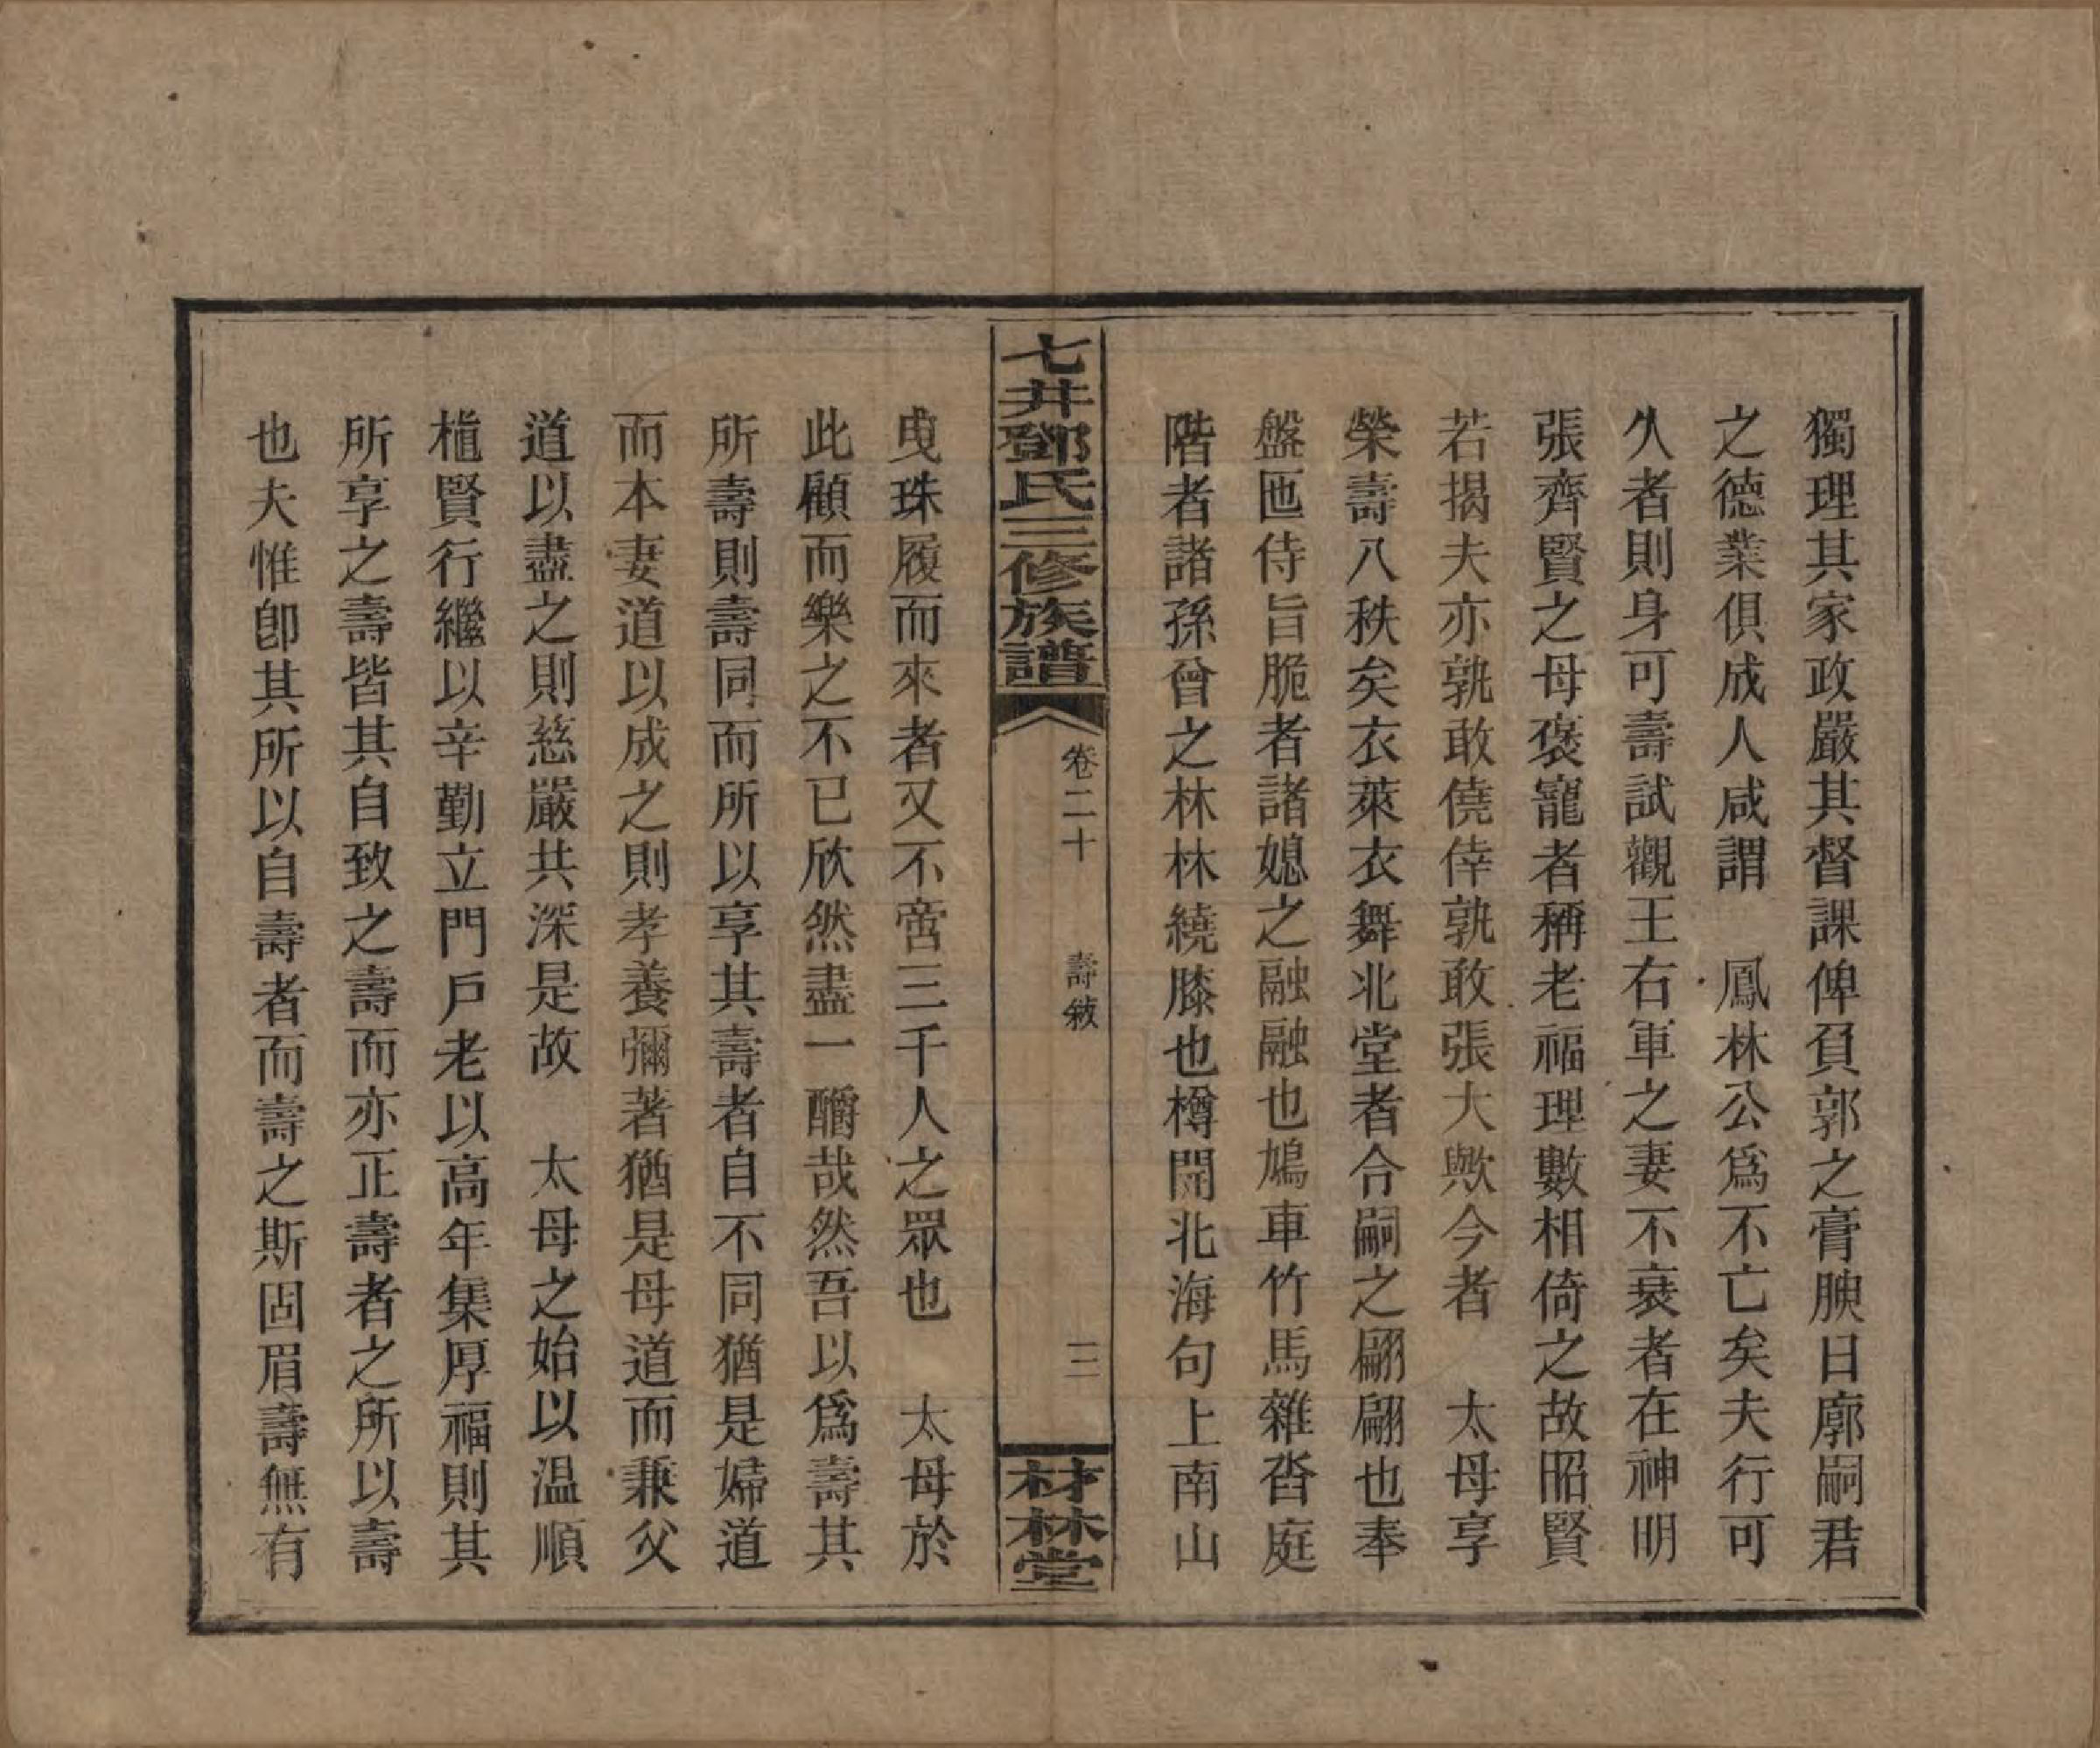 獨理其家政嚴其督課俾負郭之膏腴日廓嗣君
之德業俱成人咸謂　鳳林公爲不亡矣夫行可
久者則身可壽試觀王右軍之妻不衰者在神明
張齊賢之母褒寵者稱老福理數相倚之故昭賢
若揭夫亦孰敢僥倖孰敢張大歟今者　太母享
榮壽八秩矣衣萊衣舞北堂者合嗣之翩翩也奉
盤匜侍旨脆者諸媳之融融也鳩車竹馬雜沓庭
階者諸孫曾之林林繞膝也樽開北海句上南山
七井鄧氏三修族譜
卷二十　壽敘　二
材林堂
曳珠履而來者又不啻三千人之眾也　太母於
此顧而樂之不已欣然盡一醻哉然吾以爲壽其
所壽則壽同而所以享其壽者自不同猶是婦道
而本妻道以成之則孝養彌著猶是母道而兼父
道以盡之則慈嚴共深是故　太母之始以温順
植賢行繼以辛勤立門戶老以高年集厚福則其
所享之壽皆其自致之壽而亦正壽者之所以壽
也夫惟卽其所以自壽者而壽之斯固眉壽無有